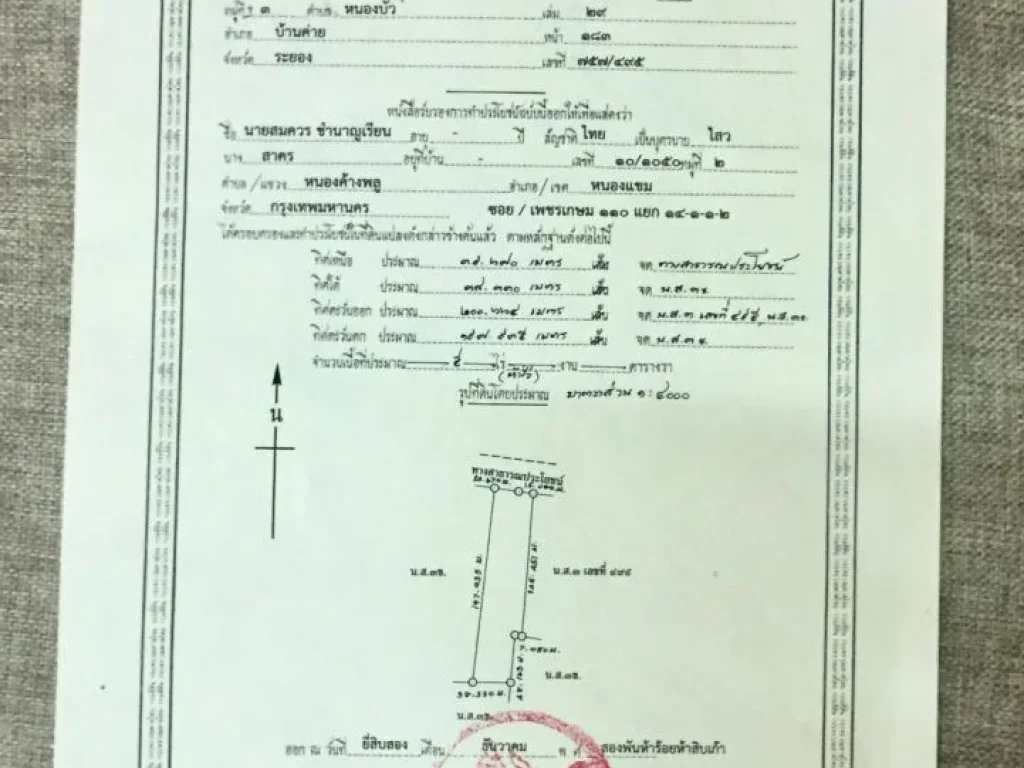 หมู่ที่ ๓ ตำบล หนองบัว เล่ม ๒๙
อำเภอ บ้านค่าย หน้า ๑๘๓
จังหวัด ระยอง เลขที่ ๗๕๗/๔๙๕
หนังสือรับรองการทำประโยชน์ฉบับนี้ออกให้เพื่อแสดงว่า
ชื่อ นายสมควร ชำนาญเรียน อายุ - ปี สัญชาติ ไทย เป็นบุตรนาย ไสว
นาง สาคร อยู่ที่บ้าน - เลขที่ ๑๐/๑๐๕๐ หมู่ที่ ๒
ตำบล/แขวง หนองค้างพลู อำเภอ/เขต หนองแขม
จังหวัด กรุงเทพมหานคร ซอย / เพชรเกษม ๑๑๐ แยก ๑๔-๑-๑-๒
ได้ครอบครองและทำประโยชน์ในที่ดินแปลงดังกล่าวข้างต้นแล้ว ตามหลักฐานดังต่อไปนี้
ทิศเหนือ ประมาณ ๓๕.๒๗๐ เมตร เส้น จด ทางสาธารณประโยชน์
ทิศใต้ ประมาณ ๓๙.๓๓๐ เมตร เส้น จด น.ส.๓ข.
ทิศตะวันออก ประมาณ เมตร เส้น จด น.ส.๓ เลขที่ น.ส.๓ข.
ทิศตะวันตก ประมาณ ๑๙๗.๙๓๕ เมตร เส้น จด น.ส.๓ข.
จำนวนเนื้อที่ประมาณ ๕ ไร่ งาน ตารางวา
(ห้าไร่)
รูปที่ดินโดยประมาณ มาตราส่วน ๑ : ๔๐๐๐
น
ทางสาธารณประโยชน์
น.ส.๓ข. น.ส.๓ เลขที่ ๔๙๕
๗.๐๕๐ ม.
น.ส.๓ข.
๓๙.๓๓๐ ม.
น.ส.๓ข.
ออก ณ วันที่ ยี่สิบสอง เดือน ธันวาคม พ.ศ. สองพันห้าร้อยห้าสิบเก้า